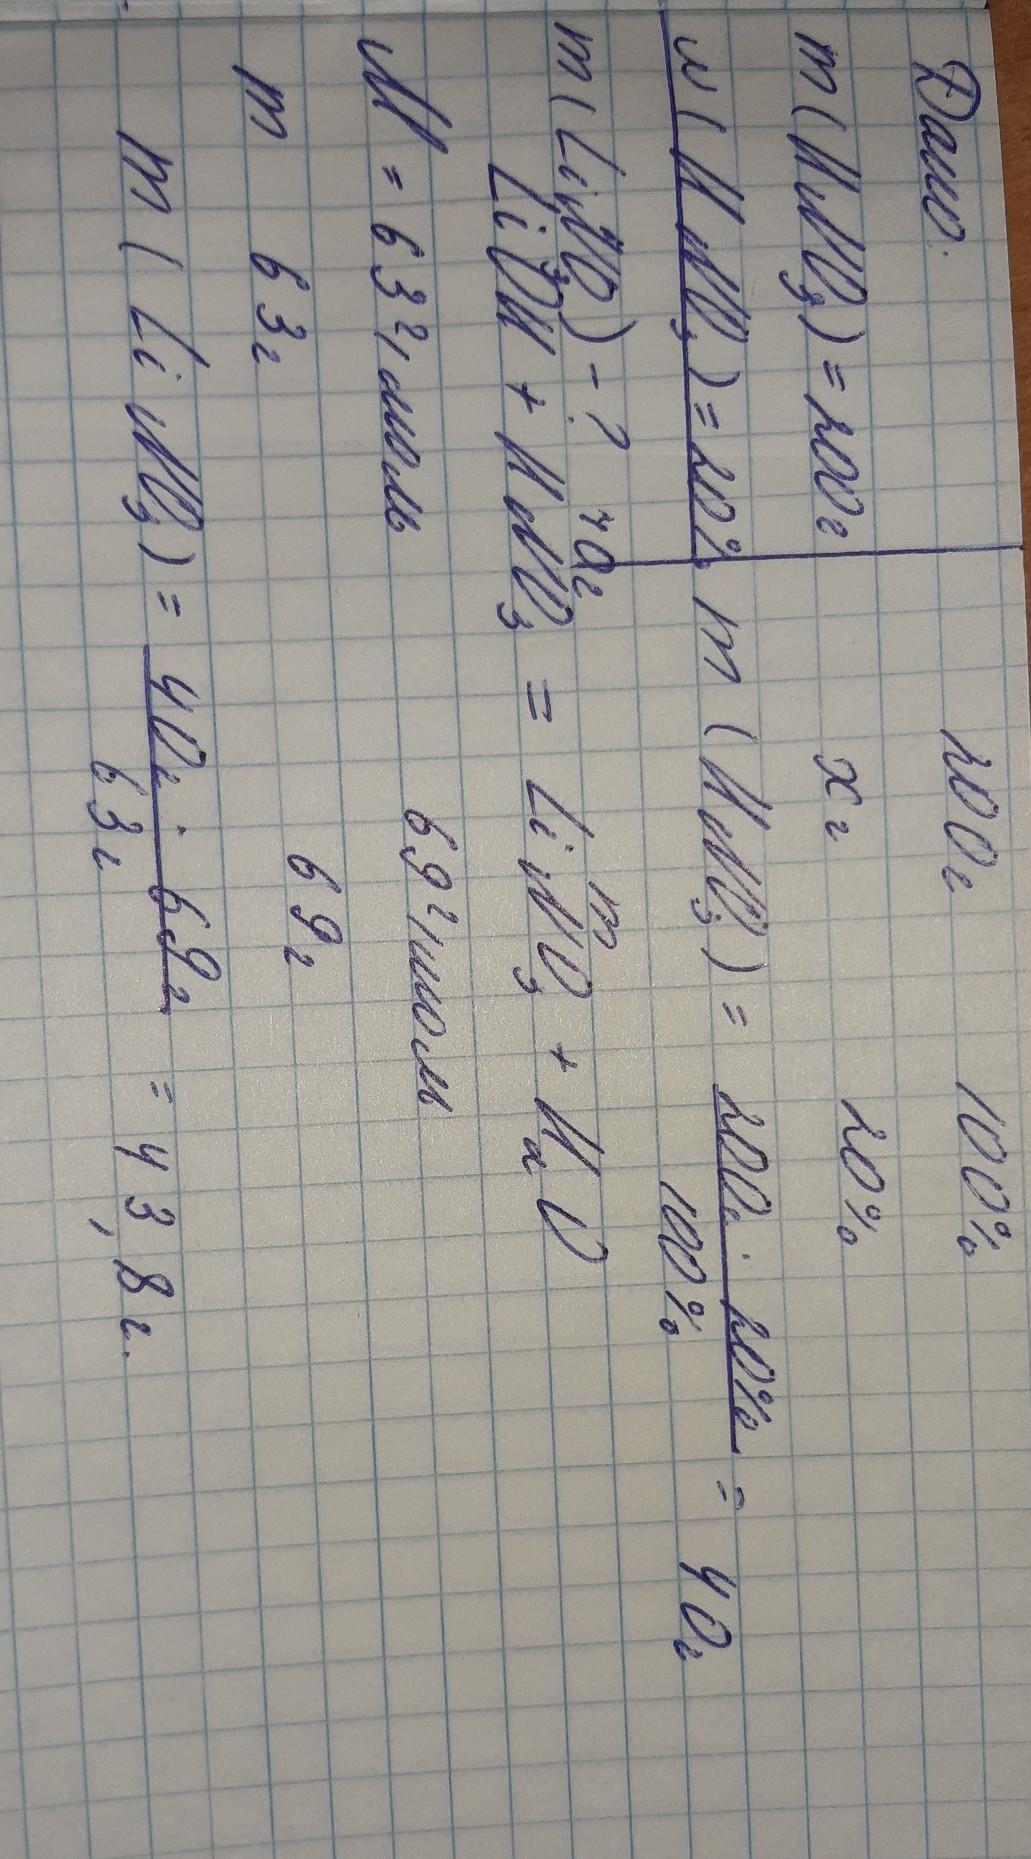 Дано:
m(HNO3) = 200г
w(HNO3) = 20%
m(LiNO3) - ?
200г 100%
xг 20%
m(HNO3) = 200г · 20% / 100% = 40г
40г m
LiOH + HNO3 = LiNO3 + H2O
M = 63г/моль 69г/моль
m 63г 69г
m(LiNO3) = 40г · 69г / 63г = 43,8г.